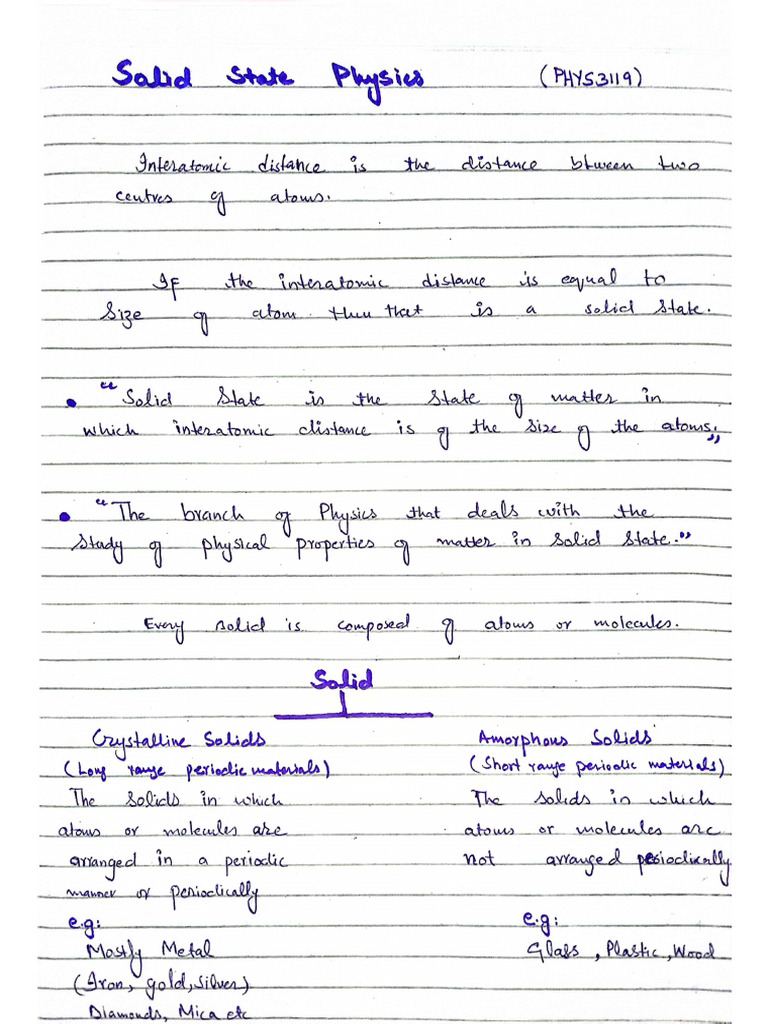 Solid State Physics (PHYS3119)
Interatomic distance is the distance btween two
centres of atoms.
If the interatomic distance is equal to
size of atom then that is a solid state.
• "Solid State is the state of matter in
which interatomic distance is of the size of the atoms."
• "The branch of Physics that deals with the
study of physical properties of matter in solid state."
Every solid is composed of atoms or molecules.
Solid
Crystalline Solids
(Long range periodic materials)
The solids in which
atoms or molecules are
arranged in a periodic
manner or periodically
e.g:
Mostly Metal
(Iron, gold, silver)
Diamonds, Mica etc
Amorphous Solids
(Short range periodic materials)
The solids in which
atoms or molecules are
not arranged periodically
e.g:
Glass, Plastic, Wood